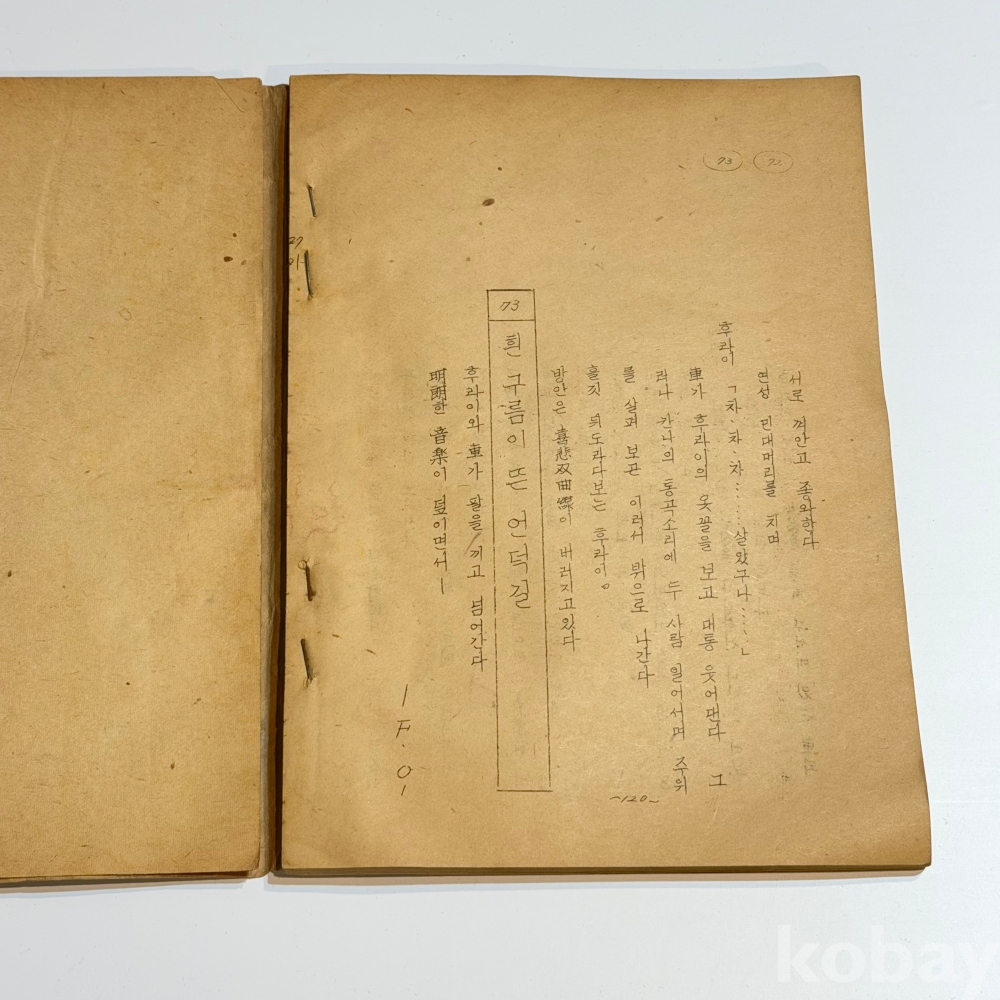 73 72
서로 껴안고 종와하다
연성 민대머리를 치며
후라이 「차·차·차……살았구나……」
車가 후라이의 옷꼴을 보고 대통 웃어댄다 그
러나 칸나의 통곡소리에 두 사람 일어서며 주위
를 살펴 보곤 이러서 밖으로 나간다
흘깃 뒤도라다보는 후라이。
방안은 喜悲双曲線이 버러지고있다
73 흰 구름이 뜬 언덕길
후라이와 車가 팔을 끼고 넘어간다
明朗한 音楽이 덮이면서ー
ーF.Oー
~120~
kobay